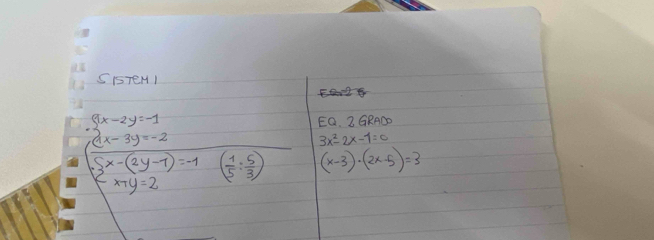 SISTEMI
x-2y=-1
x-3y=-2
x-(2y-1)=-1 (1/5; 5/3)
x+y=2
EQ. 2 GRADO
3x²-2x-1=0
(x-3)·(2x-5)=3